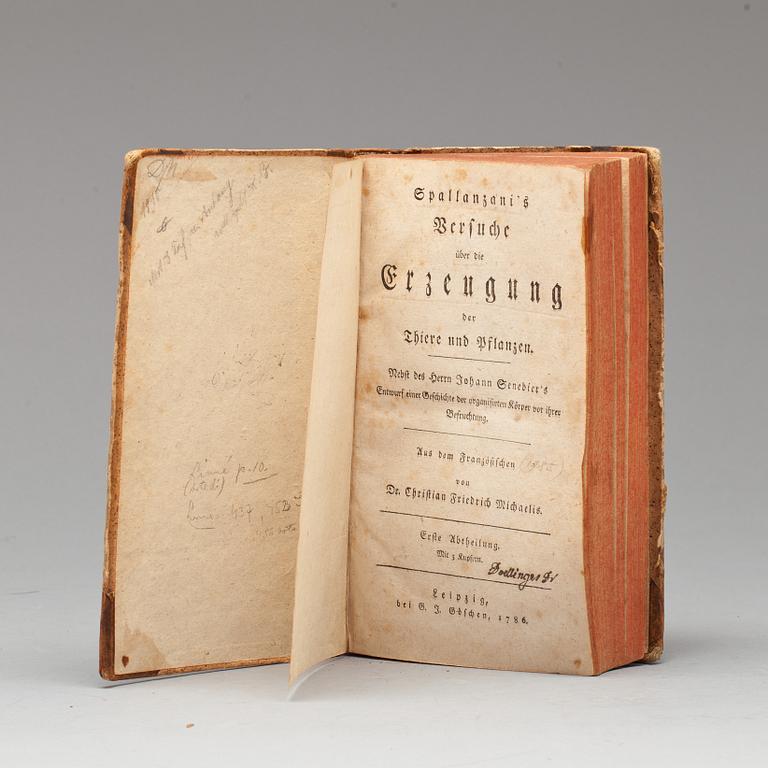 Linné p. 10.
(Artedi)
Spallanzani's
Versuche
über die
Erzeugung
der
Thiere und Pflanzen.
Nebst des Herrn Johann Senebier's
Entwurf einer Geschichte der organisirten Körper vor ihrer
Befruchtung.
Aus dem Französischen (1785)
von
Dr. Christian Friedrich Michaelis.
Erste Abtheilung.
Mit 3 Kupfern.
Doellinger Dr
Leipzig,
bei G. J. Göschen, 1786.